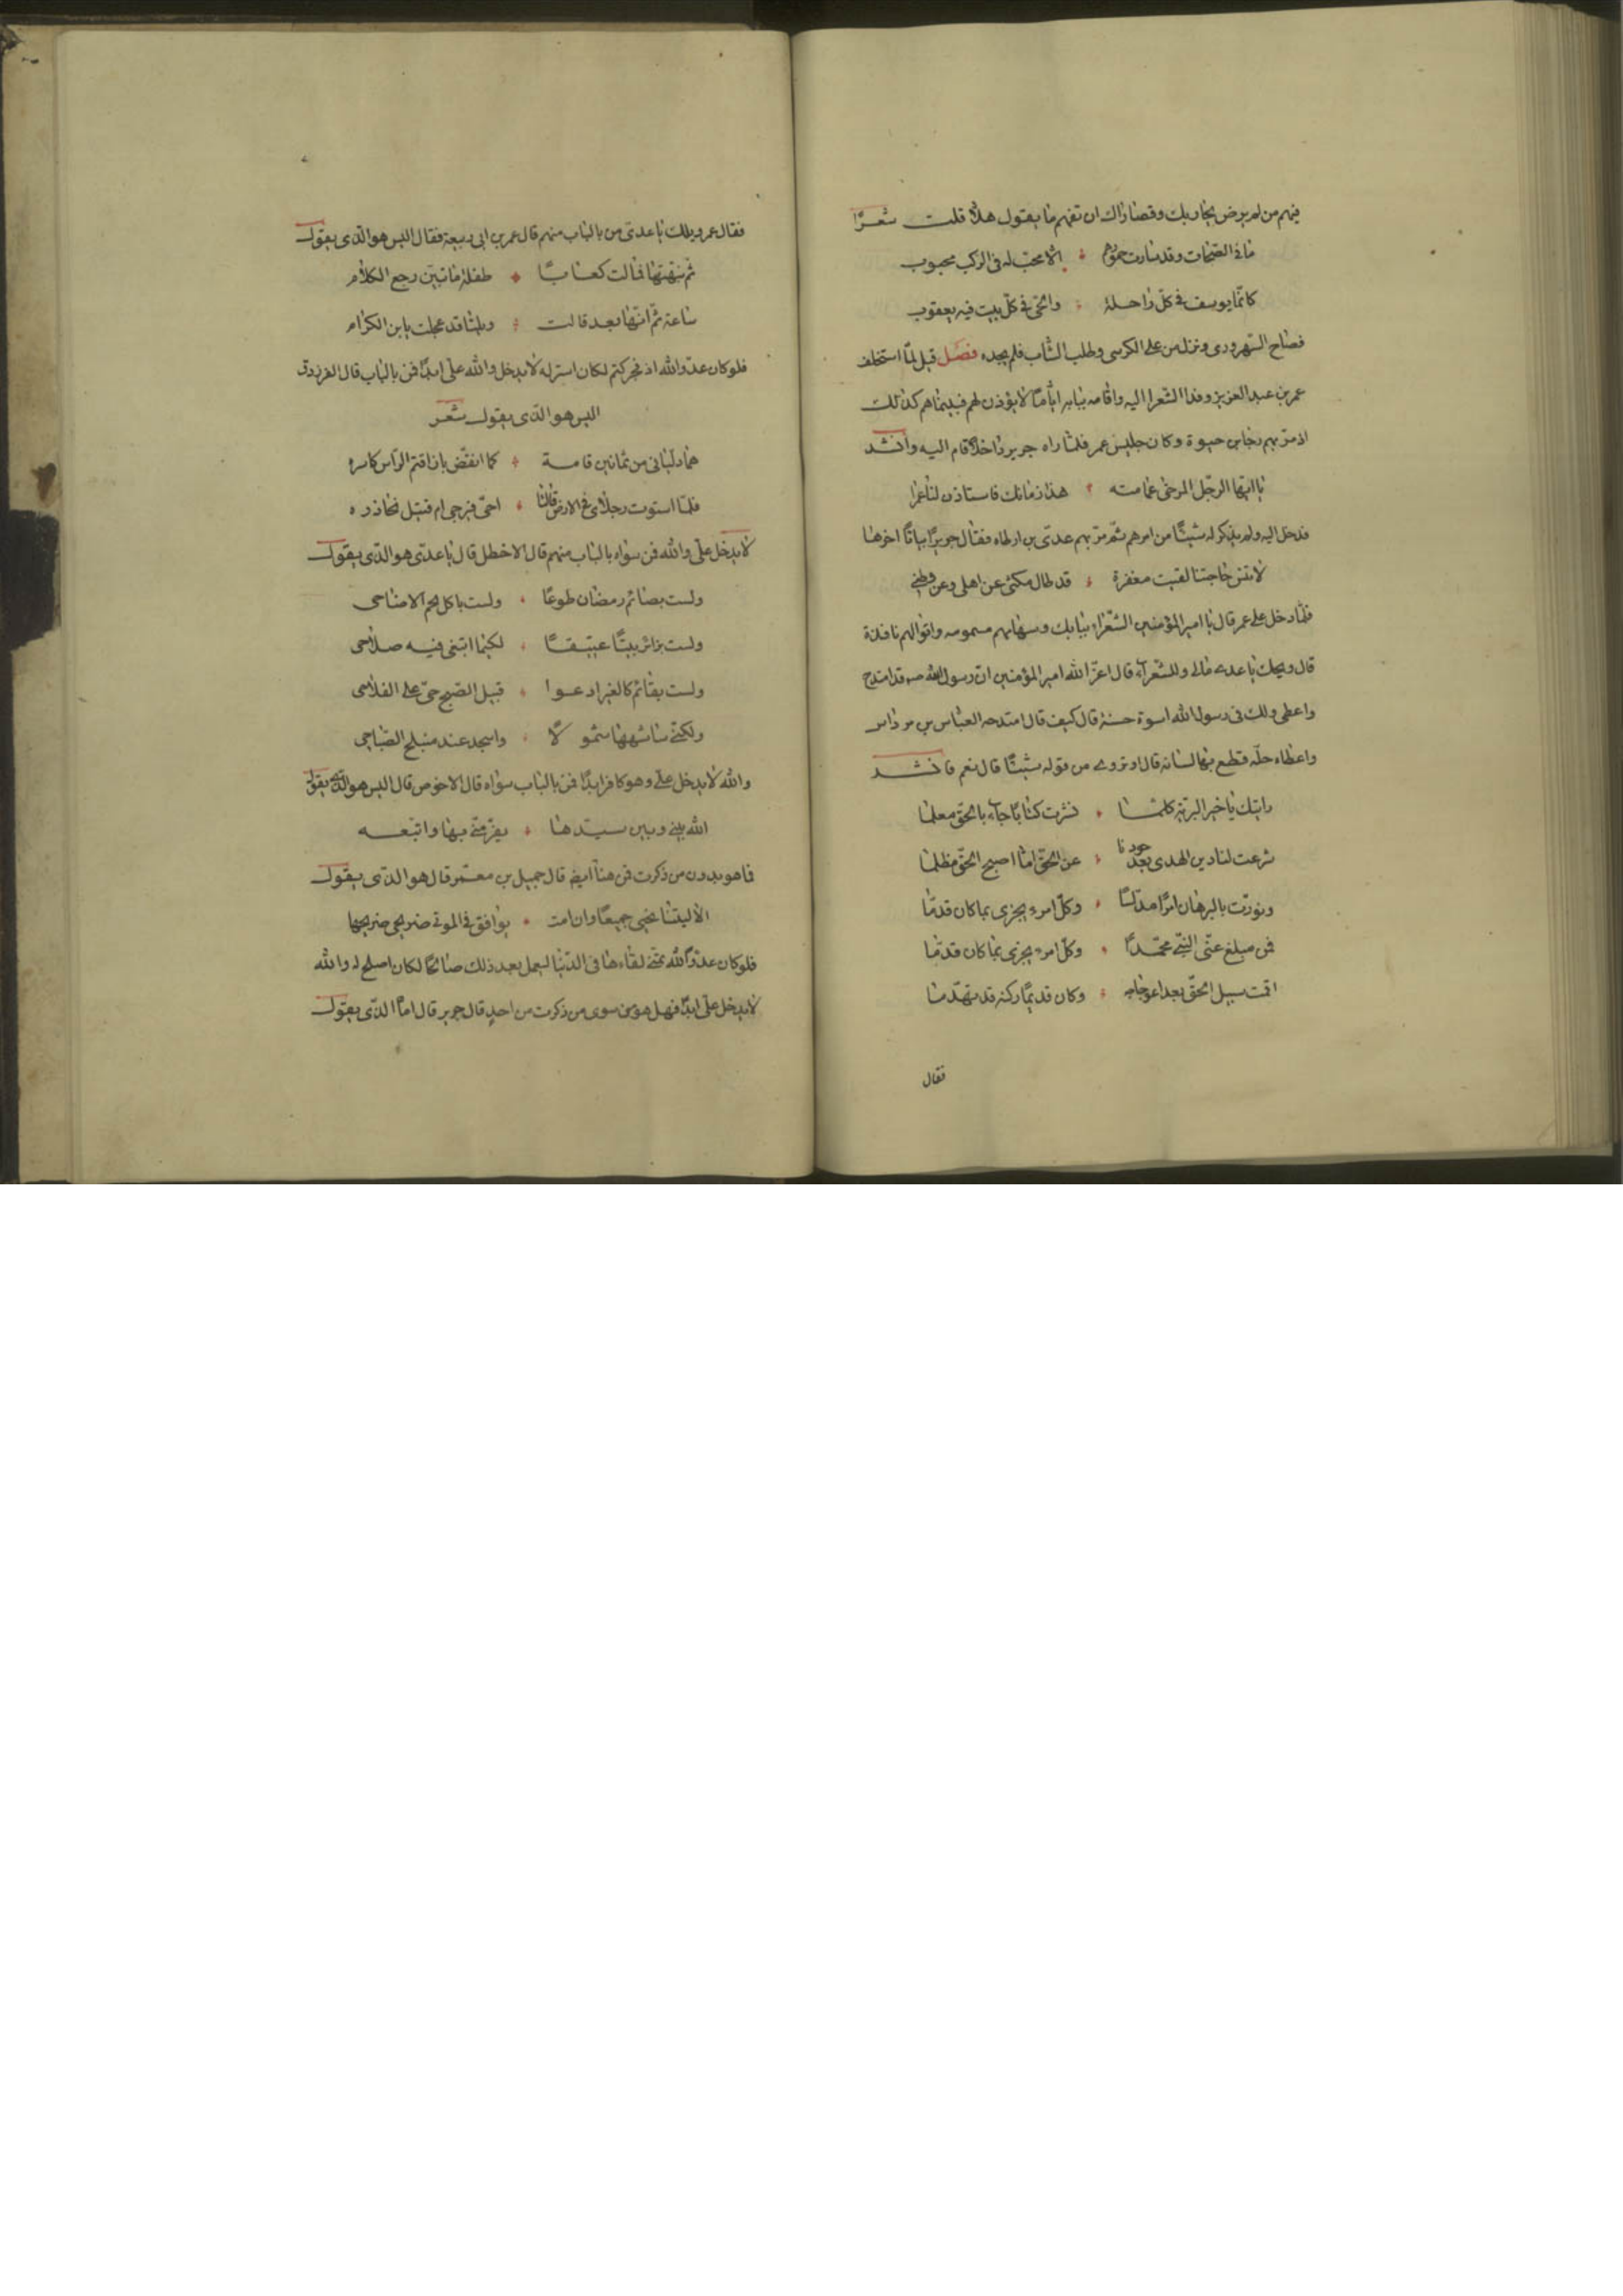 فيهم من لم يرض بجاربك وقصاراك ان تفهم ما يقول هلا قلت شعرًا
ما في الصحاب وقد سارت حمولهم الا محب له في الركب محبوب
كانما يوسف في كل راحلة والحي في كل بيت فيه يعقوب
فصاح السهروردى ونزل من على الكرسى وطلب الشاب فلم يجده فصل قيل لما استخلف
عمر بن عبد العزيز وفد الشعرا اليه واقامه ببابه اياما لا يؤذن لهم فبينما هم كذلك
اذ مر بهم رجاس حيوة وكان جليس عمر فلما راه جرير داخلا قام اليه وانشد
يا ايها الرجل المرخى عمامته هذا زمانك فاستاذن لنا عمرا
فدخل اليه ولم يذكر له شيئا من امرهم ثم مر بهم عدى بن ارطاه فقال جرير ابياتا اخرها
لا تنس حاجتنا لقيت مغفرة قد طال مكثى عن اهلى وعن وطنى
فلما دخل على عمر قال يا امير المؤمنين الشعراء ببابك وسهامهم مسمومه واقوالهم نافذة
قال ويحك يا عدى مالى وللشعراء قال اعز الله امير المؤمنين ان رسول الله صم قد امتدح
واعطى ولك فى رسول الله اسوة حسنة قال كيف قال امتدحه العباس بن مرداس
واعطاه حلة قطع بها لسانه قال اوتروى من قوله شيئا قال نعم فانشد
رايتك يا خير البرية كلها نشرت كتابا جاء بالحق معلما
شرعت لنا دين الهدى بعد جورنا عن الحق لما اصبح الحق مظلما
ونورت بالبرهان امرا مدلسا وكل امرء يجزى بما كان قدما
فمن مبلغ عنى النبى محمدا وكل امرء يجزى بما كان قدما
اقمت سبيل الحق بعد اعوجاجه وكان قديما ركنه قد تهدما
فقال
فقال عمر ويلك يا عدى من بالباب منهم قال عمر بن ابى ربيعة فقال اليس هو الذى يقول
ثم نبهتها فمالت كعابا طفلة ما تبين رجع الكلام
ساعة ثم انها بعد قالت ويلتا قد عجلت يابن الكرام
فلو كان عدو الله اذ فجر كتم لكان استر له لا يدخل والله على ابدا فمن بالباب قال الفرزدق
اليس هو الذى يقول شعر
هما دلتانى من ثمانين قامة كما انقض باز اقتم الراس كاسره
فلما استوت رجلاى فى الارض قالتا احى فيرجى ام قتيل نحاذره
لا يدخل على والله فمن سواه بالباب منهم قال الاخطل قال يا عدى هو الذى يقول
ولست بصائم رمضان طوعا ولست باكل لحم الاضاحى
ولست بزائر بيتا عتيقا لكيما ابتغى فيه صلاحى
ولست بقائم كالغير ادعوا قبيل الصبح حى على الفلاحى
ولكنى ساشربها شمولا واسجد عند منبلج الصباحى
والله لا يدخل على وهو كافر ابدا فمن بالباب سواه قال الاخوص قال اليس هو الذى يقول
الله بينى وبين سيدها يفر منى بها واتبعه
فما هو بدون من ذكرت فمن هنا ايضا قال جميل بن معمر قال هو الذى يقول
الا ليتنا نحيى جميعا وان امت يوافق فى الموتى ضريحى ضريحها
فلو كان عدو الله تمنى لقاءها فى الدنيا ليعمل بعد ذلك صالحا لكان اصلح له والله
لا يدخل على ابدا فهل هو من سوى من ذكرت من احد قال جرير قال اما الذى يقول